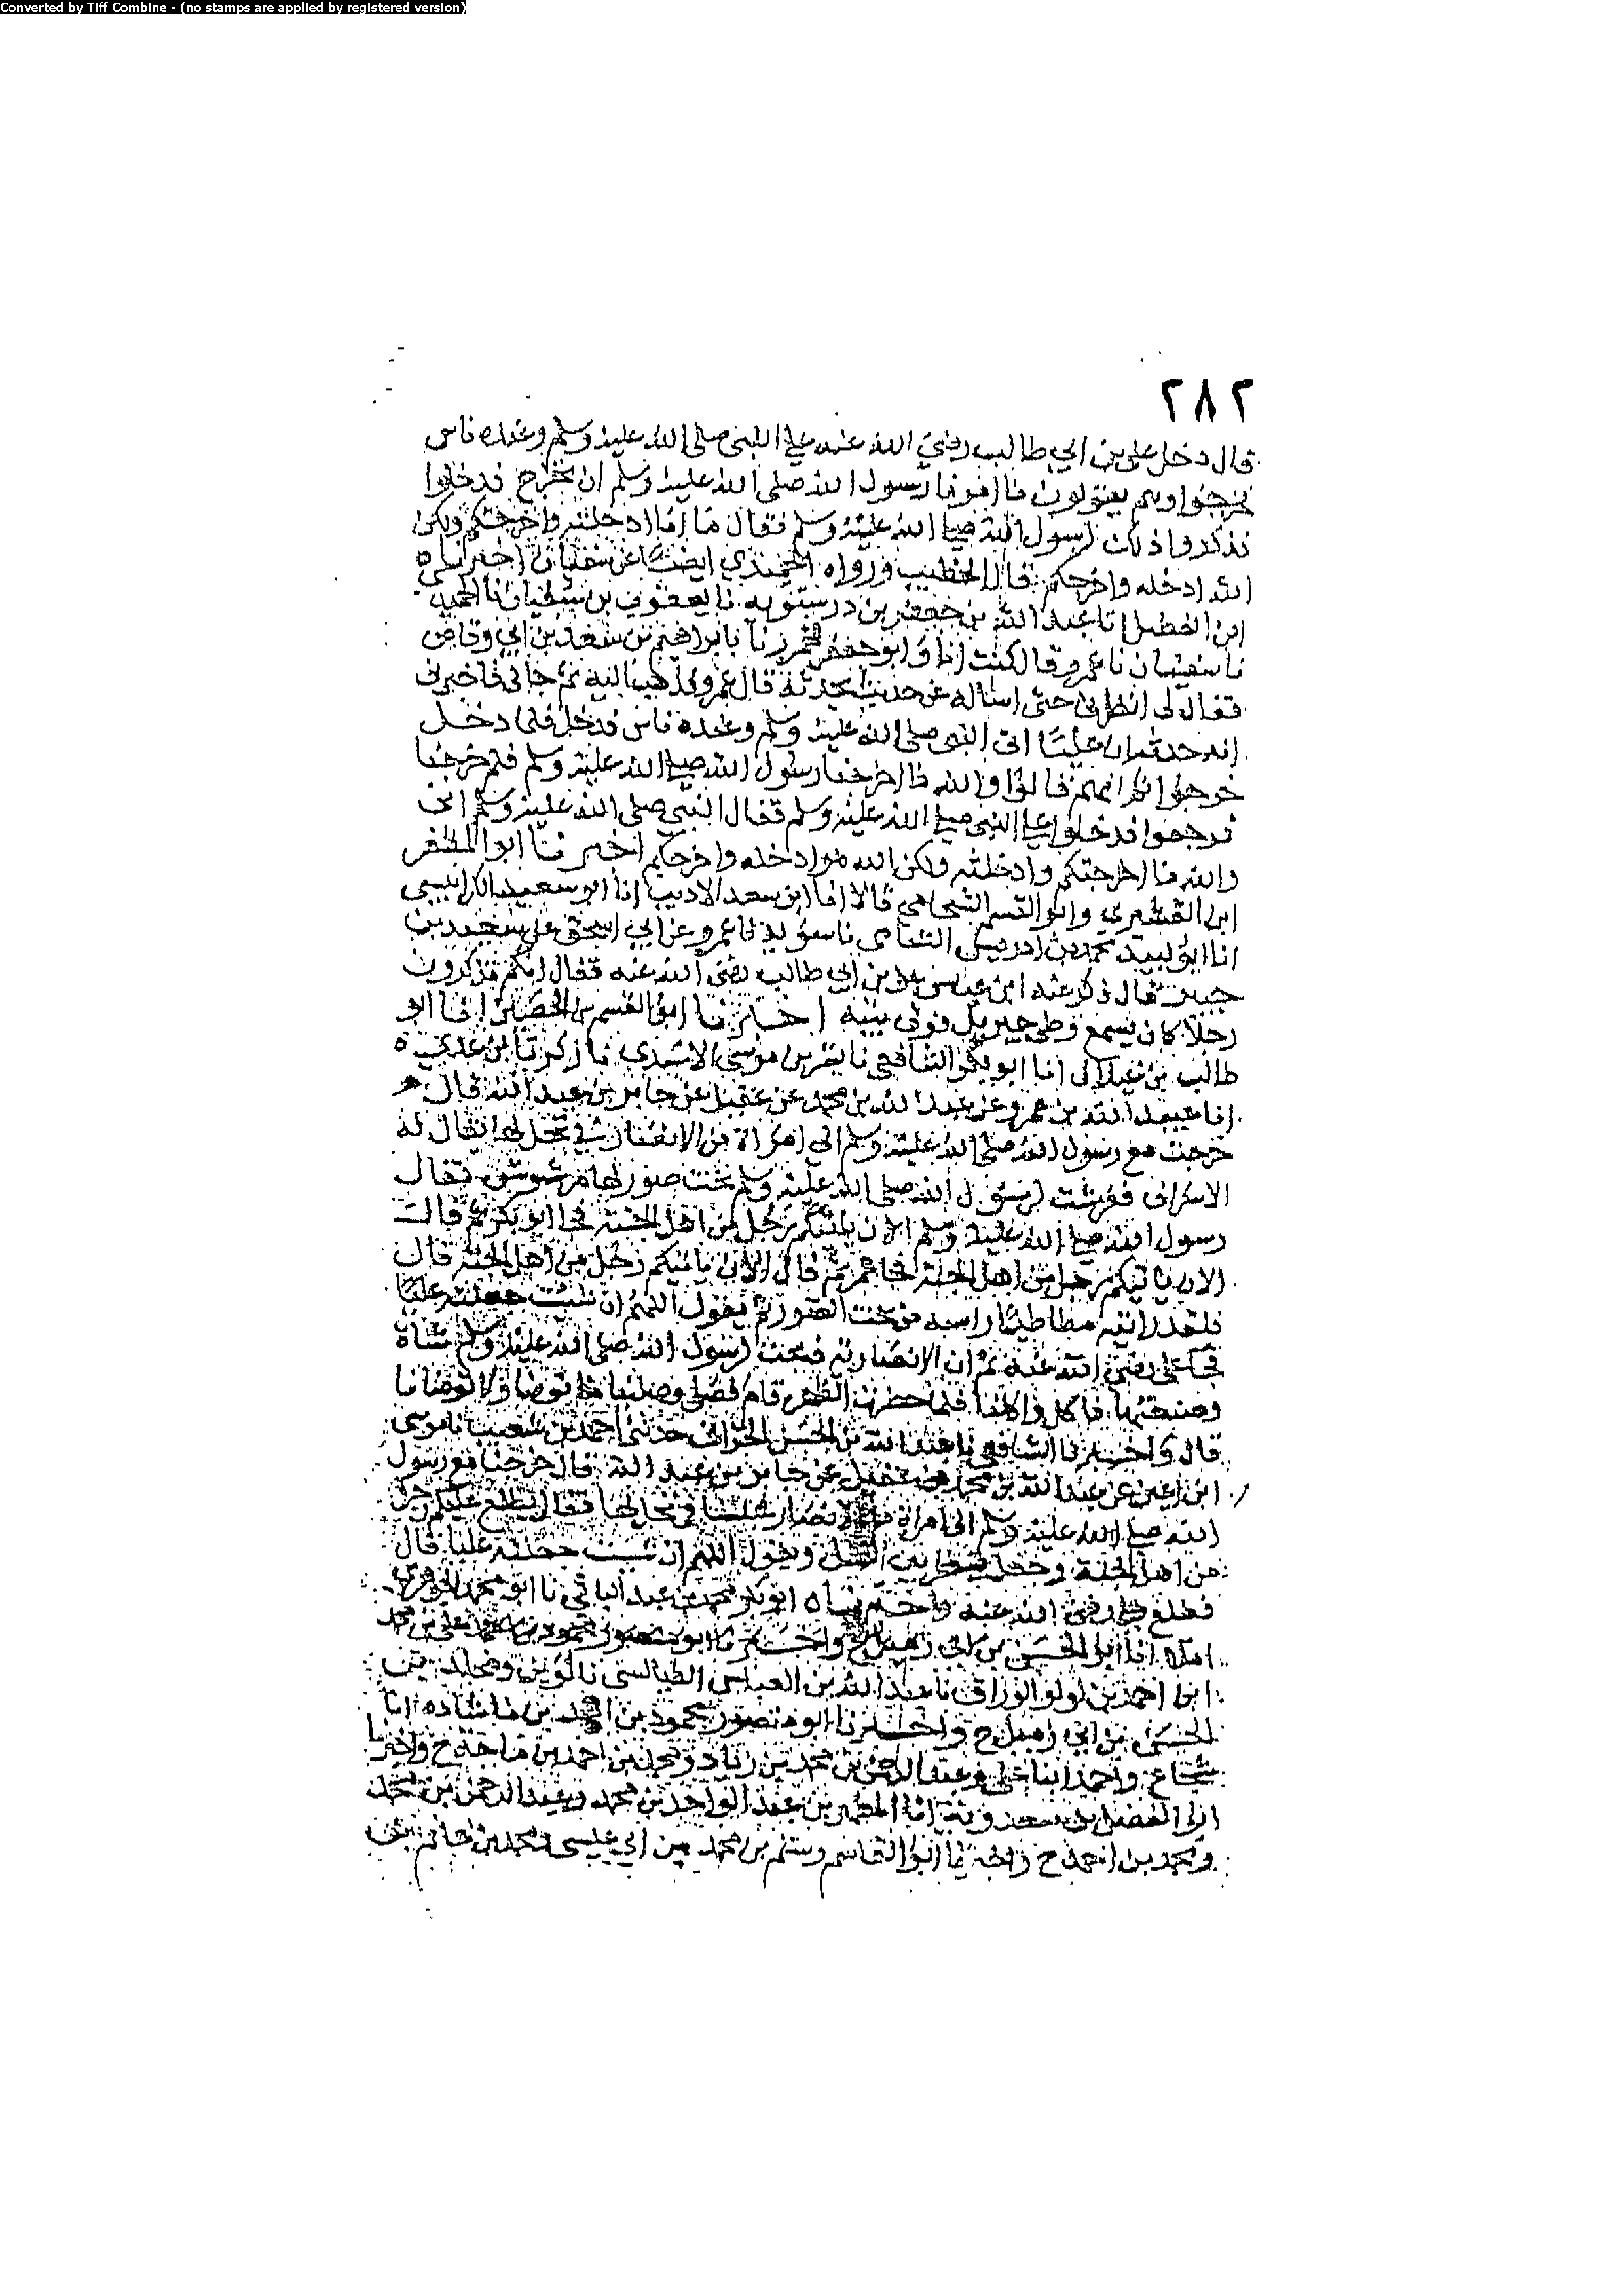 Converted by Tiff Combine - (no stamps are applied by registered version)
٢٨٢
قال دخل على بن ابي طالب رضي الله عنه علي النبى صلى الله عليه وسلم وعنده ناس
فخرجوا وهم يقولون ما امرنا رسول الله صلى الله عليه وسلم ان نخرج فدخلوا
فذكروا ذلك لرسول الله صلى الله عليه وسلم فقال ما انا ادخلته واخرجتكم ولكن
الله ادخله واخرجكم قال الخطيب ورواه الحميدي ايضا عن سفيان اخبرناه
ابن الفضل انا عبد الله بن جعفر بن درستويه نا يعقوب بن سفيان نا الحميدي
نا سفيان نا عمرو قال كنت انا وابو جعفر فمررنا بابراهيم بن سعد بن ابي وقاص
فقال لى انطلق حتى اسأله عن حديث يحدثه قال عمرو فذهب اليه ثم جاني فاخبرنى
انه حدثه ان عليا اتى النبى صلى الله عليه وسلم وعنده ناس فدخل فلما دخل
خرجوا ثم انهم قالوا والله ما اخرجنا رسول الله صلى الله عليه وسلم فلم خرجنا
فرجعوا فدخلوا على النبى صلى الله عليه وسلم فقال النبى صلى الله عليه وسلم انى
والله ما اخرجتكم وادخلته ولكن الله هو ادخله واخرجكم اخبرنا ابو المظفر
ابن القشيري وابو القسم الشحامي قالا انا ابو سعد الاديب انا ابو سعيد الكرابيسي
انا ابو لبيد محمد بن ادريس الشامي نا سويد نا عمرو عن ابي اسحق عن سعيد بن
جبير قال ذكر عند ابن عباس على بن ابي طالب رضى الله عنه فقال انكم تذكرون
رجلا كان يسمع وطى جبريل فوق بيته اخبرنا ابو القسم بن الحصين انا ابو
طالب بن غيلان انا ابو بكر الشافعى نا بشر بن موسى الاسدى نا زكريا بن عدي
انا عبيد الله بن عمرو عن عبد الله بن محمد بن عقيل عن جابر بن عبد الله قال
خرجت مع رسول الله صلى الله عليه وسلم الى امراة من الانصار في نخل لها يقال له
الاسراف ففرشت لرسول الله صلى الله عليه وسلم تحت صور لها مرشوش فقال
رسول الله صلى الله عليه وسلم الان ياتيكم رجل من اهل الجنة فجا ابو بكر ثم قال
الان ياتيكم رجل من اهل الجنة فجا عمر ثم قال الان ياتيكم رجل من اهل الجنة قال
فلقد رايته مطاطيا راسه من تحت الصور ثم يقول اللهم ان شئت جعلته عليا
فجا على رضى الله عنه ثم ان الانصارية ذبحت لرسول الله صلى الله عليه وسلم شاة
وصنعتها فاكل واكلنا فلما حضرت الظهر قام فصلى وصلينا ما توضا ولا توضانا
قال واخبرنا الشافعي نا عبد الله بن الحسن الحرانى حدثنى احمد بن شعيب نا موسى
ابن اعين عن عبد الله بن محمد بن عقيل عن جابر بن عبد الله قال خرجنا مع رسول
الله صلى الله عليه وسلم الى امراة من الانصار فجلسنا في نخل لها فقال يطلع عليكم رجل
من اهل الجنة وجعل ينظر بين النخل ويقول اللهم ان شئت جعلته عليا قال
فطلع على رضى الله عنه واخبرناه ابو بكر محمد بن عبد الباقي نا ابو محمد الجوهري
املاء انا ابو الحسن
ابن احمد بن لولو الوراق نا عبد الله بن العباس الطيالسى نا لوين
واخبرنا ابو منصور محمود بن احمد بن ماشاده انا
شجاع واحمد ابنا على وعبد الرحمن بن محمد بن زياد ومحمد بن احمد بن ماجة ح واخبرنا
ابو الفضل بن سعدويه انا المطهر بن عبد الواحد بن محمد وعبد الرحمن بن محمد
ومحمد بن احمد ح واخبرنا ابو القاسم رستم بن محمد بن ابي عيسى